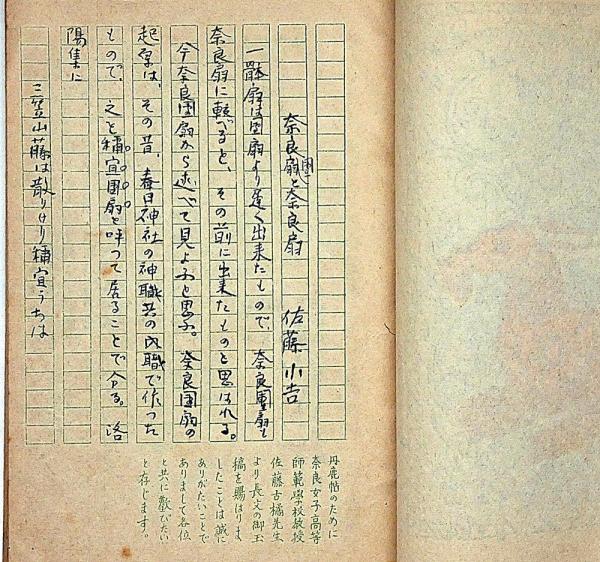 奈良團扇と奈良扇　佐藤小吉
一體扇は團扇より遲く出來たもので、奈良團扇も
奈良扇に較べると、その前に出來たものと思はれる。
今奈良團扇から述べて見ようと思ふ。奈良團扇の
起原は、その昔、春日神社の神職共の内職で作つた
もので、之を禰宜團扇と呼つて居ることで分る。洛
陽集に
三笠山藤は散りけり禰宜うちは
丹鹿のために
奈良女子高等
師範學校教授
佐藤古橘先生
より長文の御玉
稿を賜はりま
したことは誠に
ありがたいことで
ありまして各位
と共に歡びたい
と存じます。